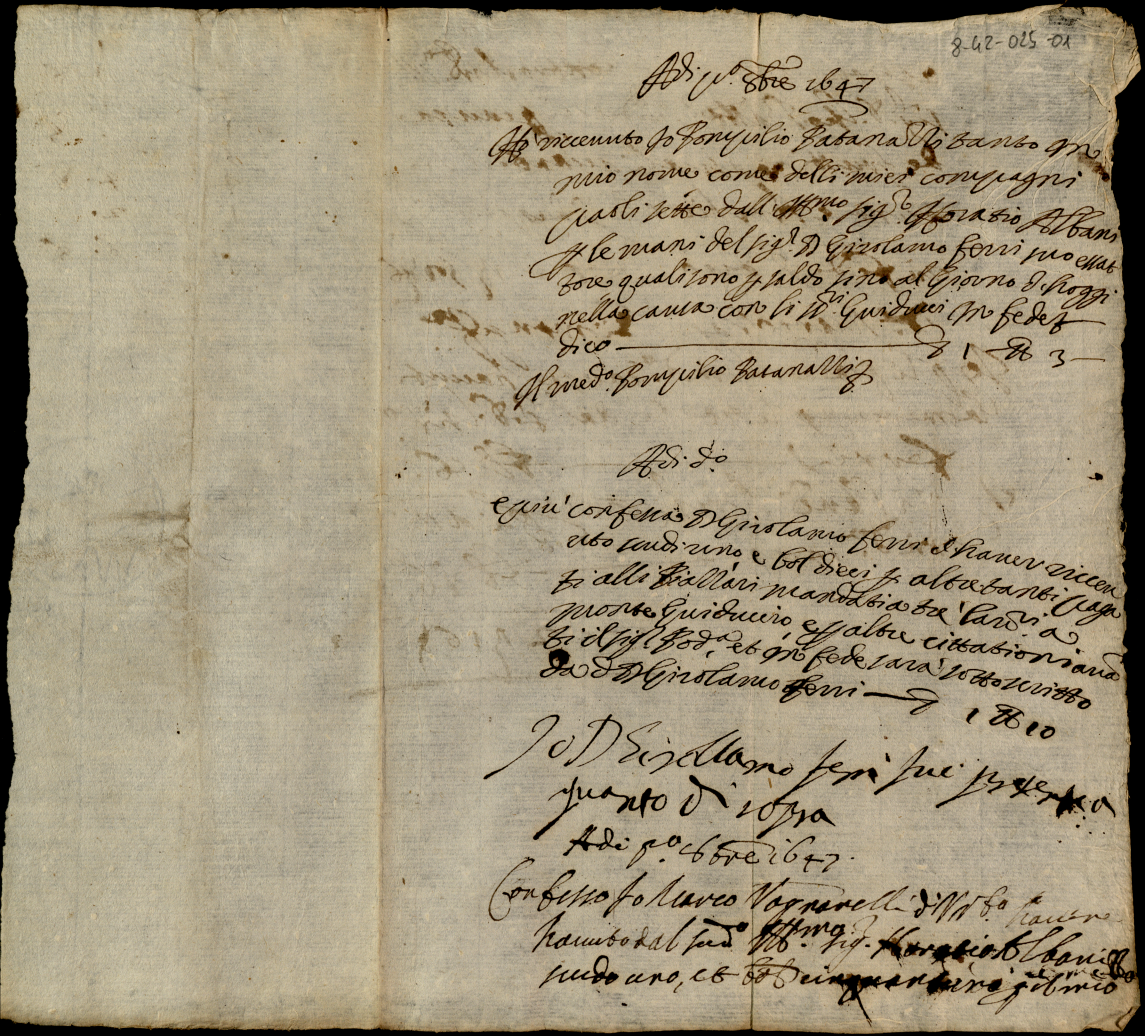 8-42-025-01
Adi p.º 8bre 1647
Ho riceuuto Io Pompilio Batanalli tanto in
mio nome come delli miei compagni
paoli sette dall Ill.mo sig.r Horatio Albani
p le mani del sig.r D Girolamo ferri suo esat
tore quali sono p saldo sino al Giorno d. hoggi
nella causa con li SS.ri Guiducci in fede
dico 1 3
Il med.o Pompilio Batanalli
Adi d.o
e piu confessa D Girolamo ferri d hauer riceu
uto scudi uno e bol dieci p altretanti paga
ti alli mandati a tre a
monte Guiduccio, e p altre cittationi
ti il sig.r Pod.a et in fede sarà sottoscritto
da d D Girolamo ferri 1 10
Io D Girollamo feri
quanto di sopra
Adi p.o 8bre 1647
Confesso Io Marco Vagnarelli d Vrb.o hauere
hauuto dal sud.o Ill.mo sig.r Horatio Albani
scudo uno, et bol cinquanta